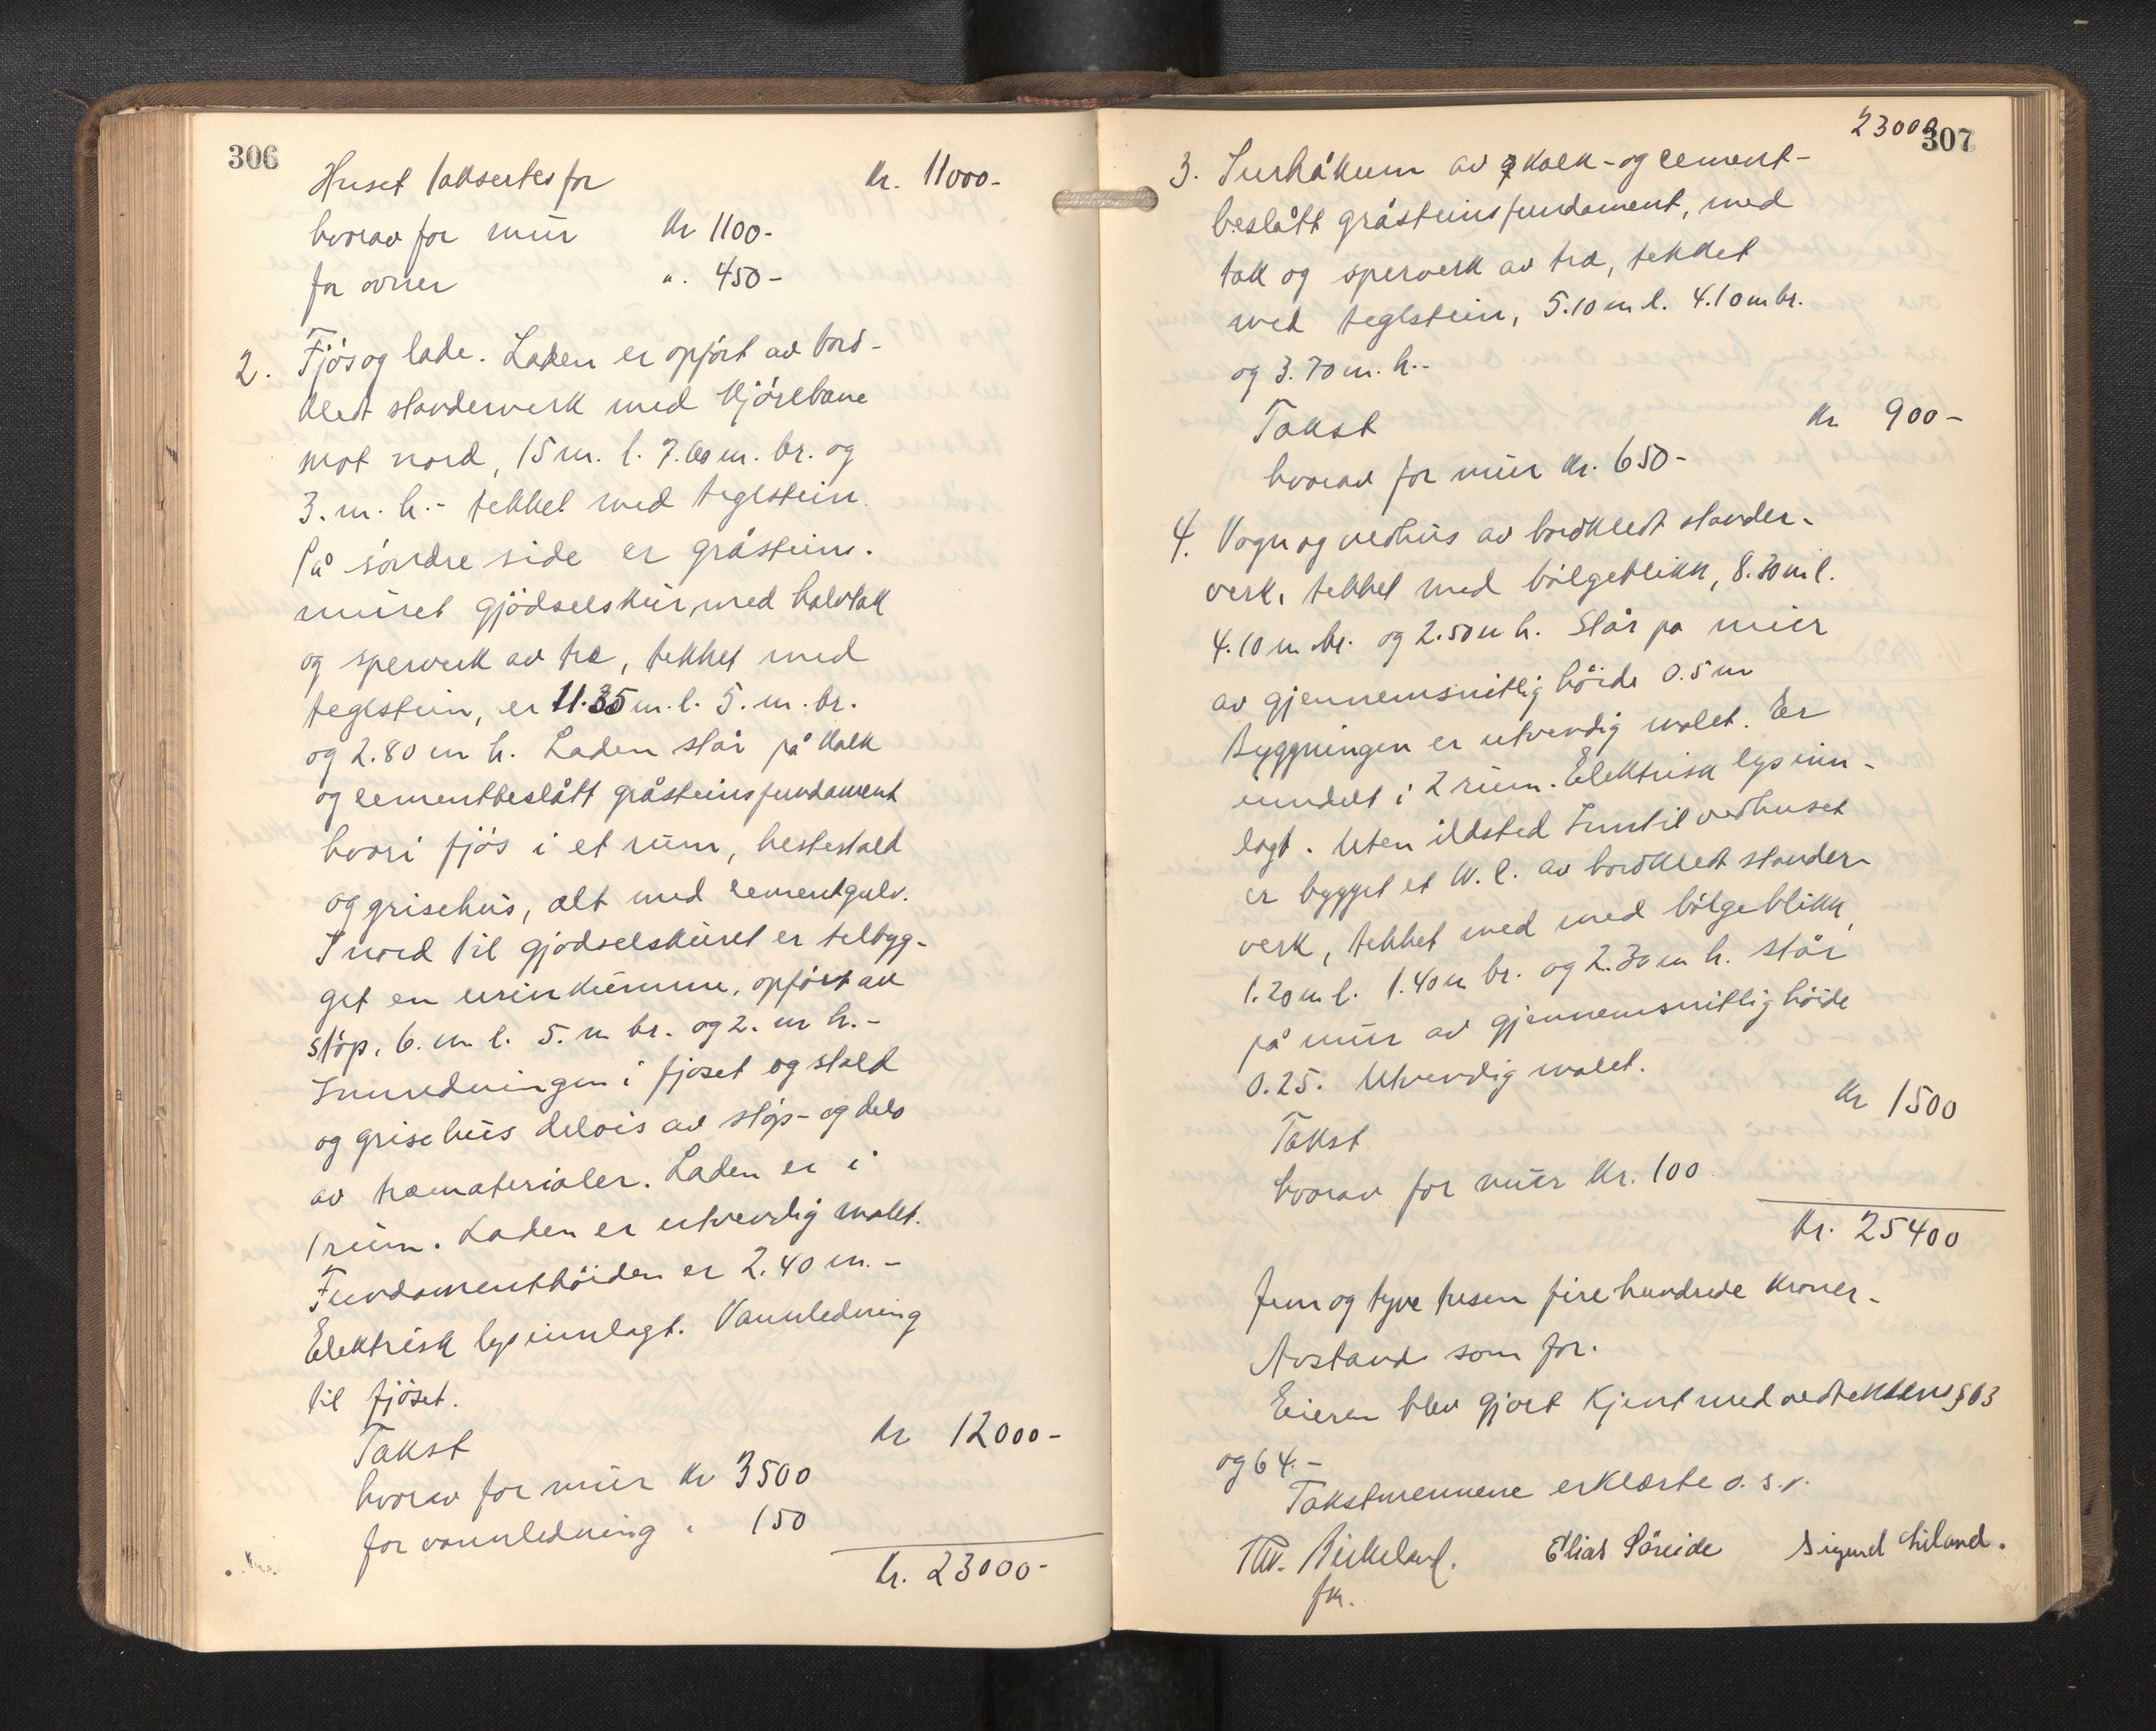 306
Huset taksertes for Kr. 11000-
hvorav for mur Kr 1100-
for ovner ". 450-
2. Fjös og lade. Laden er opfört av bord-
kledt stavderverk med kjörebane
mot nord, 15 m. l. 7.60 m. br. og
3. m. h.- tekket med teglstein.
På söndre side er gråsteins.
muret gjödselskur, med halvtak
og sperverk av træ, tekket med
teglstein, er 11.35 m. l. 5. m. br.
og 2.80 m h. Laden står på kalk
og cementbeslått gråsteinsfundament
hvori fjös i et rum, hestestald
og grisehus, alt med cementgulv.
I nord til gjödselskuret er tilbyg-
get en urinkumme, opfört av
stöp, 6. m l. 5. m br. og 2. m h.-
Innredningen i fjöset og stald
og grisehus delvis av stöp- og dels
av træmaterialer. Laden er i
1 rum. Laden er utvendig malet.
Fundamenthöiden er 2.40 m.-
Elektrisk lys innlagt. Vannledning
til fjöset.
Takst Kr 12000-
hvorav for mur Kr 3500
for vannledning " 150
Kr. 23000-
23000
307
3. Surhåkum av kalk- og cement-
beslått gråsteinsfundament, med
tak og sperverk av træ, tekket
med teglstein, 5.10 m l. 4.10 m br.
og 3.70 m. h.-
Takst Kr 900-
hvorav for mur Kr. 650-
4. Vogn og vedhus av bordkledt stander-
verk, tekket med bölgeblikk, 8.30 m l.
4.10 m. br. og 2.50 m h. Står pa mur
av gjennemsnitlig höide 0.5 m
Byggningen er utvendig malet. Er
inndelt i 2 rum. Elektrisk lys inn-
lagt. Uten ildsted Inntil vedhuset
er bygget et W.C. av bordkledt stander-
verk, tekket med med bölgeblikk,
1.20 m l. 1.40 m br. og 2.30 m h. står
på mur av gjennemsnittlig höide
0.25. Utvendig malet.
Takst Kr 1500
hvorav for mur Kr. 100
Kr. 25400
fem og tyve tusen fire hundrede kroner-
Avstand som för.
Eieren blev gjort kjent med vedtektens § 63
og 64.-
Takstmennene erklærte o. s. v.
Elias Söreide
fm.